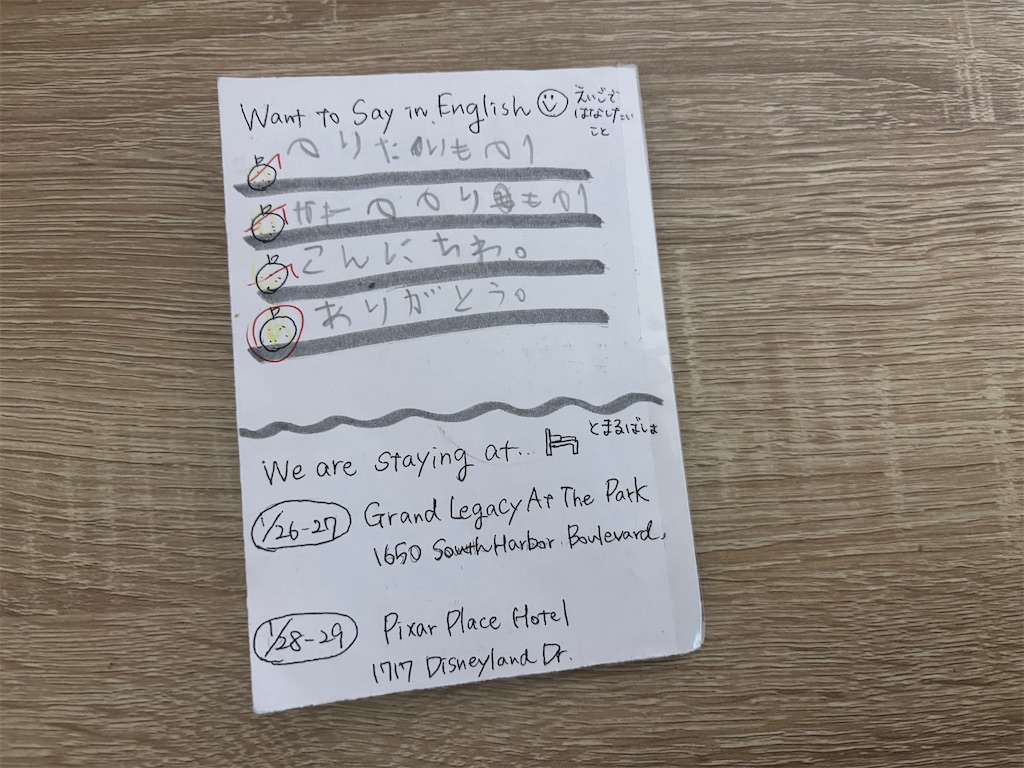 Want to Say in English
えいごで
はなしたい
こと
のりたいもの1
こんにちわ。
ありがとう。
We are staying at...
とまるばしょ
1/26-27
Grand Legacy At The Park
1650 South Harbor Boulevard,
1/28-29
Pixar Place Hotel
1717 Disneyland Dr.